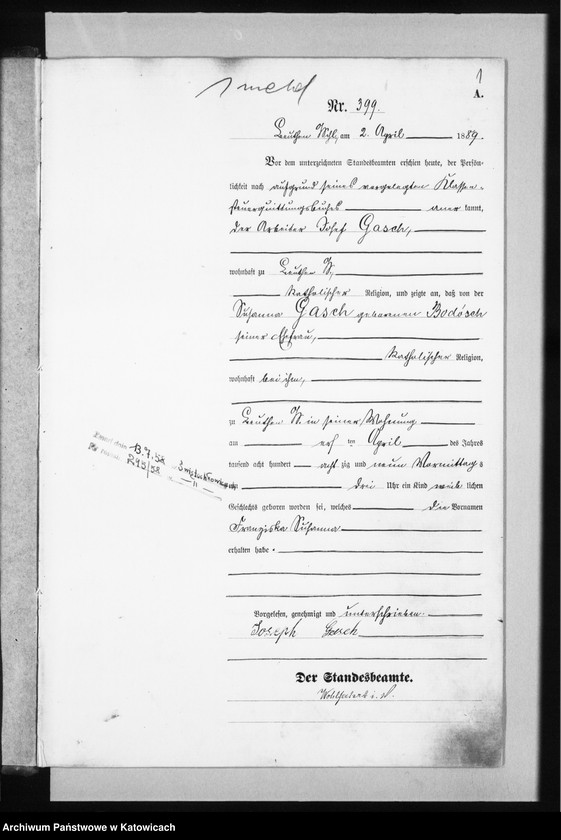 1
A.
Nr. 399.
Beuthen O/S, am 2. April 1889.
Vor dem unterzeichneten Standesbeamten erschien heute, der Persön-
lichkeit nach aufgrund seines vorgelegten Klassen-
steuerquittungsbuches aner kannt,
der Arbeiter Josef Gasch,
wohnhaft zu Beuthen O/S,
katholischer Religion, und zeigte an, daß von der
Susanna Gasch geborenen Bodosch
seiner Ehefrau,
katholischer Religion,
wohnhaft bei ihm,
zu Beuthen O/S. in seiner Wohnung
am ersten April des Jahres
tausend acht hundert acht zig und neun Vormittag s
drei Uhr ein Kind weib lichen
Geschlechts geboren worden sei, welches die Vornamen
Franziska Susanna
erhalten habe.
Vorgelesen, genehmigt und unterschrieben.
Joseph Gasch
Der Standesbeamte.
13.7.58 Świętochłowice
293/58 —"—
Archiwum Państwowe w Katowicach